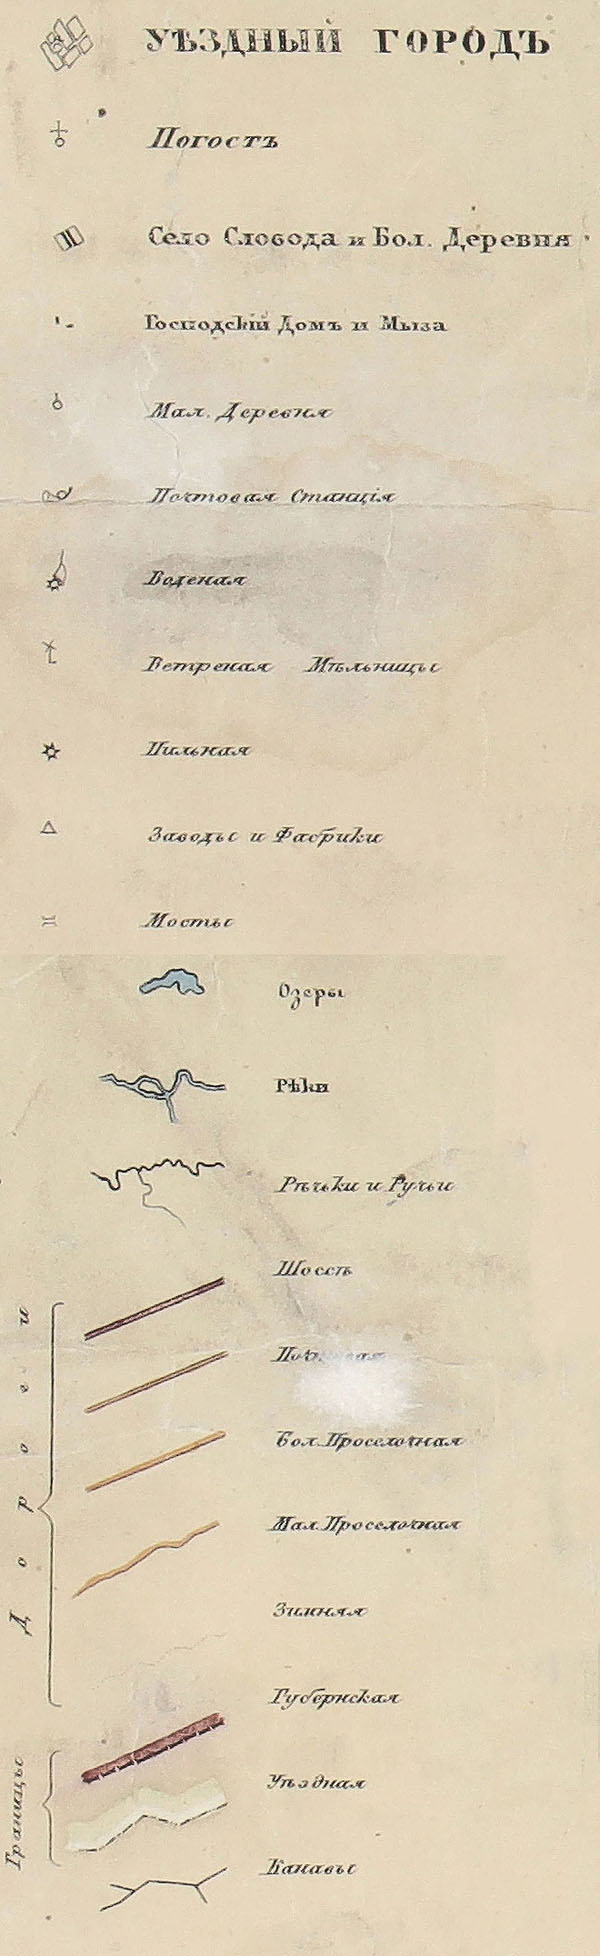 УѢЗДНЫЙ ГОРОДЪ
Погостъ
Село Слобода и Бол. Деревня
Господскій Домъ и Мыза
Мал. Деревня
Почтовая Станція
Воденая
Ветреная Мѣльницы
Пильная
Заводы и Фабрики
Мосты
Озеры
Рѣки
Рѣчьки и Ручьи
Дороги
Шоссѣ
Бол. Проселочная
Мал. Проселочная
Зимняя
Границы
Губернская
Уѣздная
Канавы